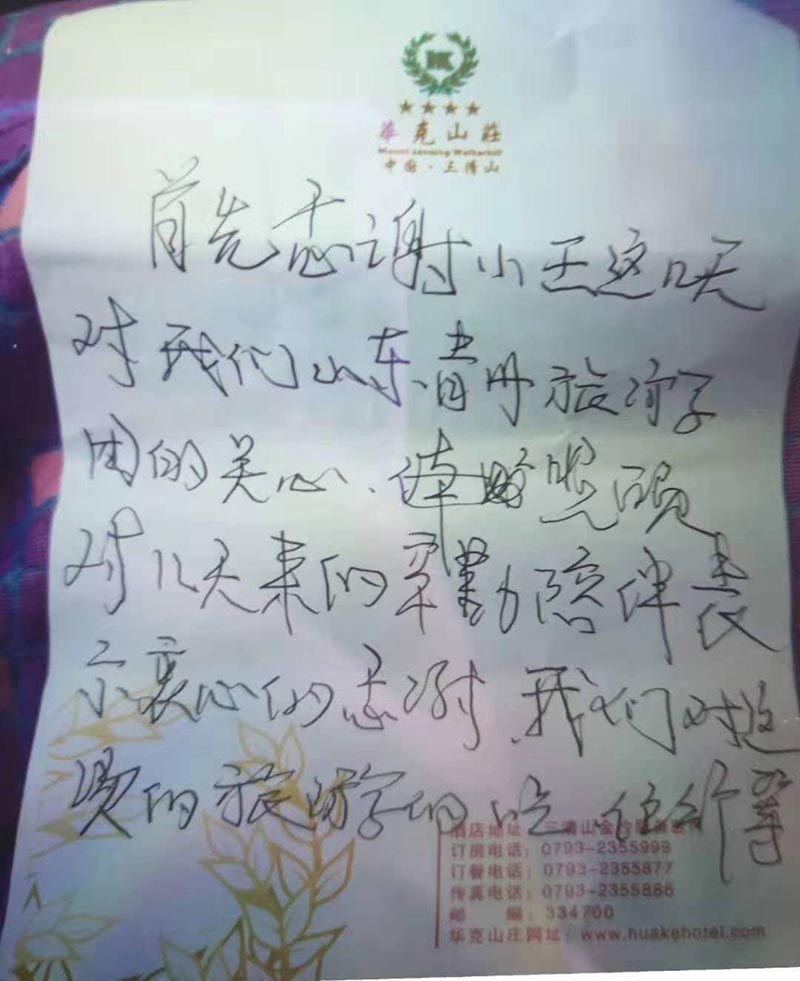 華克山莊
Mount sanqing Walkerhill
中国·三清山
首先感谢小王这几天
对我们山东青州旅游学
团的关心、照顾
对几天来的辛勤陪伴表
示衷心的感谢,我们对这
的旅游学的吃住行等
酒店地址:三清山金沙服务区
订房电话:0793-2355999
订餐电话:0793-2355877
传真电话:0793-2355886
邮 编:334700
华克山庄网址:www.huakehotel.com